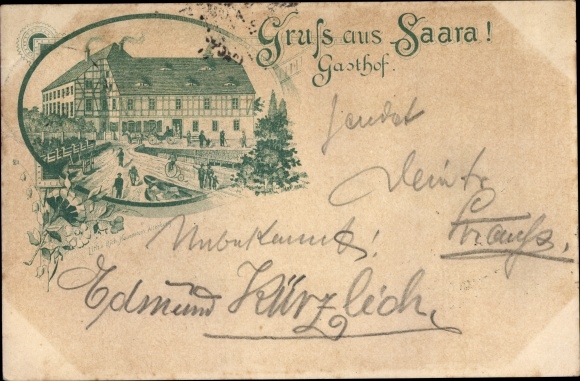 Gruss aus Saara!
Gasthof.
sendet
Strauss.
Unbekannt!
Edmund Kürzlich.